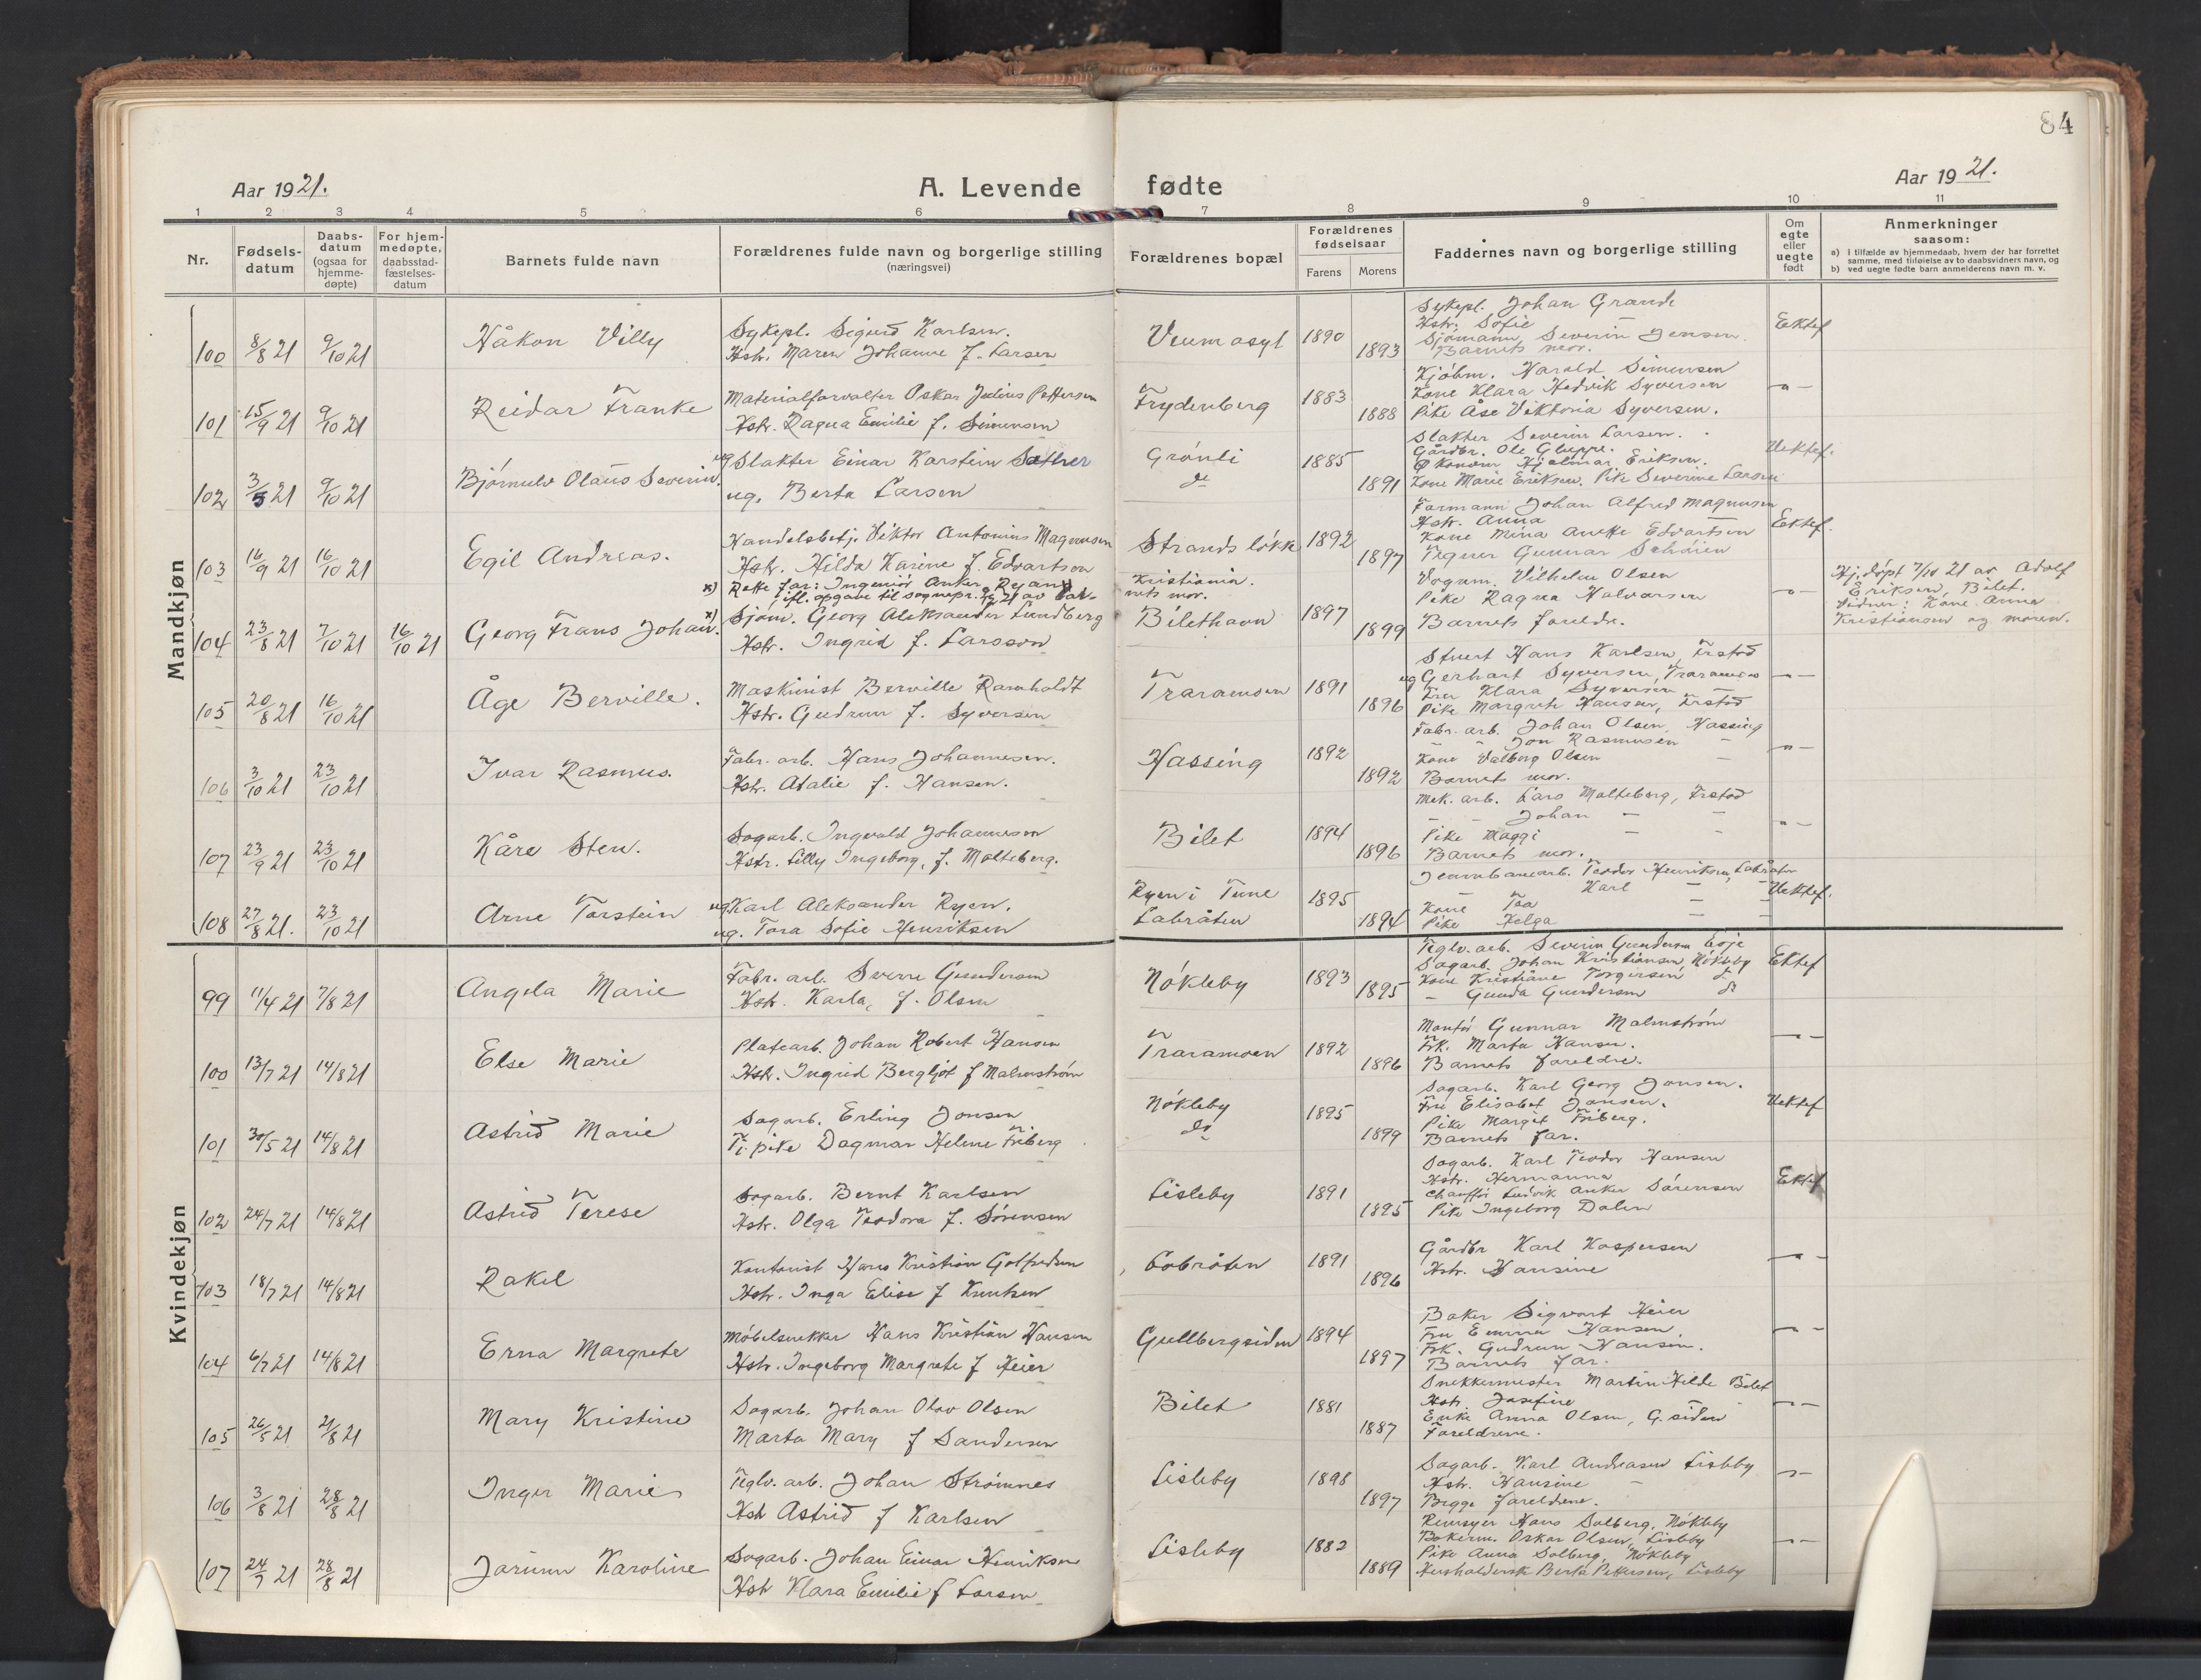 84
Aar 1921.
A. Levende fødte
Aar 1921.
1 2 3 4 5 6 7 8 9 10 11
Nr.
Fødsels-
datum
Daabs-
datum
(ogsaa for
hjemme-
døpte)
For hjem-
medøpte,
daabsstad-
fæstelses-
datum
Barnets fulde navn
Forældrenes fulde navn og borgerlige stilling
(næringsvei)
Forældrenes bopæl
Forældrenes
fødselsaar
Farens Morens
Faddernes navn og borgerlige stilling
Om
egte
eller
uegte
født
Anmerkninger
saasom:
a) i tilfælde av hjemmedaab, hvem der har forrettet
samme, med tilføielse av to daabsvidners navn, og
b) ved uegte fødte barn anmelderens navn m. v.
Mandkjøn
100 8/8 21 9/10 21 Håkon Villy
Sykepl. Sigurd Karlsen.
Hstr. Maren Johanne f. Larsen
Veum asyl 1890 1893
Sykepl. Johan Grande
Hstr. Sofie —
Sjømann Severin Jensen.
Barnets mor.
Ektef.
101 15/9 21 9/10 21 Reidar Franke
Materialforvalter Oskar Julius Pettersen
Hstr. Ragna Emilie f. Simensen
Frydenberg 1883 1888
Kjøbm. Harald Simensen
Kone Klara Hedvik Syversen
Pike Åse Viktoria Syversen.
—"—
102 3/5 21 9/10 21 Bjørnulv Olaus Severin.
ug Slakter Einar Karstein Sæther
ug. Berta Larsen
Grønli
do 1885 1891
Slakter Severin Larsen.
Gårdbr. Ole Gluppe.
Økonom Hjalmar Eriksen.
Kone Marie Eriksen, Pike Severine Larsen
Uektef.
103 16/9 21 16/10 21 Egil Andreas.
Handelsbetj. Viktor Antonius Magnusen
Hstr. Hilda Karine f. Edvartsen
Strandsløkk 1892 1897
Formann Johan Alfred Magnusen
Hstr. Anna
Kone Mina Anette Edvartsen
Tegner Gunnar Schøien
Ektef.
104 23/8 21 7/10 21 16/10 21 Georg Frans Johan. x)
x) Rette far: Ingeniør Anker Ryan
ifl. opgave til sognepr. 21 av bar-
nets mor.
Kristiania.
Sjøm. Georg Aleksander Lundberg
Hstr. Ingrid f. Larsson
Bilethavn 1897 1899
Vognm. Vilhelm Olsen
Pike Ragna Halvorsen
Barnets foreldre.
—"—
Hj.døpt 7/10 21 av Adolf
Eriksen, Bilet.
Vidner: Kone Anna
Kristiansen og moren.
105 20/8 21 16/10 21 Åge Berville.
Maskinist Berville Ramholdt
Hstr. Gudrun f. Syversen
Traramoen 1891 1896
Stuert Hans Karlsen, Frstad
ug Gerhart Syversen, Traramoen
Fru Klara Syversen —
Pike Margrete Hansen, Frstad
—"—
106 3/10 21 23/10 21 Ivar Rasmus.
Fabr. arb. Hans Johannesen.
Hstr. Atalie f. Hansen.
Hassing 1892 1892
Fabr. arb. Johan Olsen, Hassing
— " — Jon Rasmusen —
Kone Valborg Olsen —
Barnets mor.
—"—
107 23/9 21 23/10 21 Kåre Sten.
Sagarb. Ingvald Johannesen
Hstr. Lilly Ingeborg, f. Malteberg.
Bilet 1894 1896
Mek. arb. Lars Malteberg, Frstad
— — Johan — —
Pike Maggi — —
Barnets mor.
—"—
108 27/8 21. 23/10 21 Arne Torstein
ug Karl Aleksander Ryen.
ug. Tora Sofie Henriksen
Ryen i Tune
Labråten 1895 1894
Jernbanearb. Teodor Henriksen, Labråten
— Karl — —
Kone Toa — —
Pike Helga — —
Uektef.
Kvindekjøn
99 11/4 21 7/8 21 Angela Marie
Fabr. arb. Sverre Gundersen
Hstr. Karla, f. Olsen
Nøkleby 1893 1895
Teglv. arb. Severin Gundersen Evje
Sagarb. Johan Kristiansen, Nøkleby
Kone Kristiane Torgersen do
— Gunda Gundersen do
Ektef
100 13/7 21 14/8 21 Else Marie
Platearb. Johan Robert Hansen
Hstr. Ingrid Bergljot f Malmstrøm
Traramoen 1892 1896
Montør Gunnar Malmstrøm
Frk. Marta Hansen.
Barnets foreldre.
—"—
101 30/5 21 14/8 21 Astrid Marie
Sagarb. Erling Jonsen
Tj. pike Dagmar Helene Friberg
Nøkleby
do 1895 1899
Sagarb. Karl Georg Jansen.
Fru Elisabet Jansen.
Pike Margit Friberg.
Barnets far.
Uektef
102 24/7 21 14/8 21 Astrid Terese
Sagarb. Bernt Karlsen
Hstr. Olga Teodora f. Sørensen
Lisleby 1891 1895
Sagarb. Karl Teodor Hansen
Hstr. Hermanna
Chauffør Ludvik Anker Sørensen
Pike Ingeborg Dalen
Ektef
103 18/7 21 14/8 21 Rakel
Kontorist Hans Kristian Golfredsen
Hstr. Inga Elise f Knutsen
Labråten 1891 1896
Gårdbr Karl Kaspersen
Hstr. Hansine
—"—
104 6/7 21 14/8 21 Erna Margrete
Møbelsnekker Hans Kristian Hansen
Hstr. Ingeborg Margrete f Heier
Gullbergsiden 1894 1897
Baker Sigvart Heier
Fru Emma Hansen
Frk. Gudrun Hansen.
Barnets far.
—"—
105 26/5 21 21/8 21 Mary Kristine
Sagarb. Johan Olav Olsen
Marta Mary f Sandersen
Bilet 1881 1887
Snekkermester Martin Helde Bilet
Hstr. Josefine —
Enke Anna Olsen, G.siden
Foreldrene.
—"—
106 3/8 21 28/8 21 Inger Marie
Teglv. arb. Johan Strømnes
Hstr Astrid f Karlsen
Lisleby 1898 1897
Sagarb. Karl Andreasen Lisleby
Hstr. Hansine —
Begge foreldrene.
—"—
107 24/7 21 28/8 21 Jorunn Karoline
Sagarb. Johan Einar Henriksen
Hstr Klara Emilie f Larsen
Lisleby 1882 1889
Remsyer Hans Solberg, Nøkleby
Bakerm. Oskar Olsen, Lisleby
Pike Anna Solberg, Nøkleby
Husholderske Berta Pettersen, Lisleby
—"—